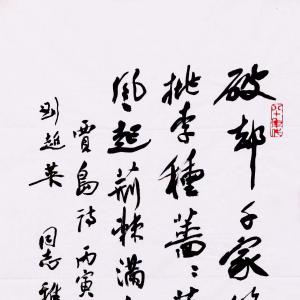 破却千家
桃李種蔷〻
風起荊棘满
賈島诗丙寅
刘超英 同志雅